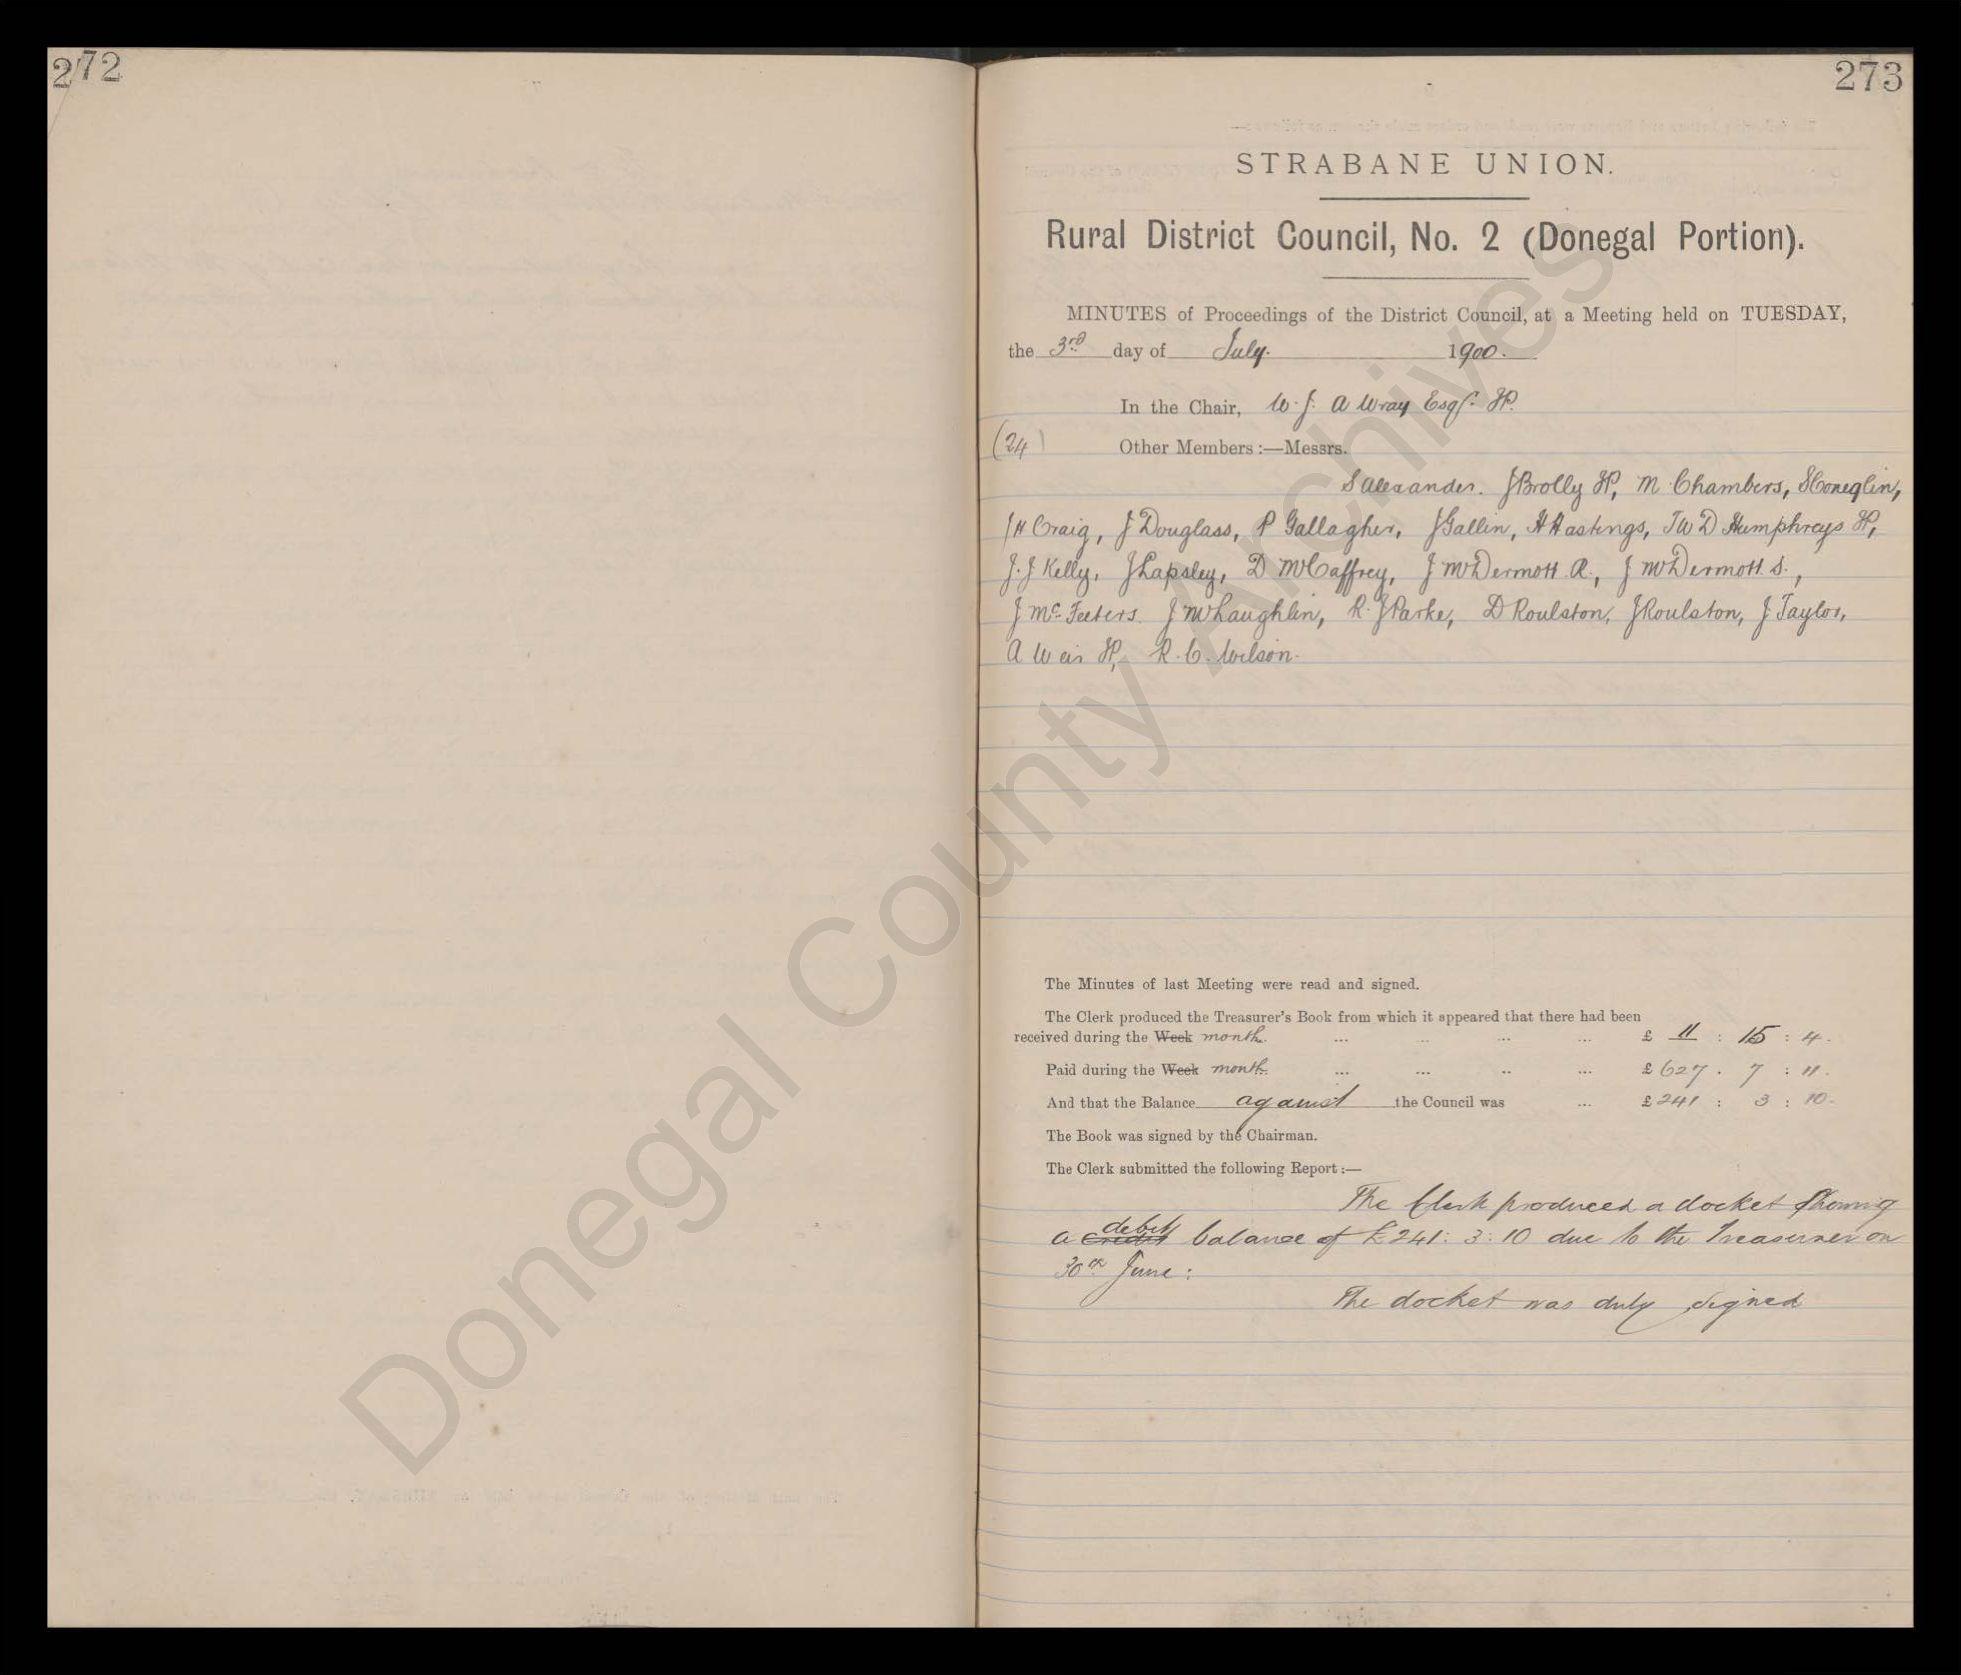 272
273
STRABANE UNION.
Rural District Council, No. 2 (Donegal Portion).
MINUTES of Proceedings of the District Council, at a Meeting held on TUESDAY,
the 3rd day of July. 1900.
In the Chair, W. J. A Wray Esqr. JP.
(24) Other Members:—Messrs.
S Alexander. J Brolly JP, M Chambers, S Coneglin,
J H Craig, J Douglass, P Gallagher, J Gallin, H Hastings, T W D Humphreys JP,
J. J Kelly, J Lapsley, D McCaffrey, J McDermott R., J McDermott S.,
J McFeeters. J McLaughlin, R. J Parke, D Roulston, J Roulston, J Taylor,
A Weir JP, R. C. Wilson.
The Minutes of last Meeting were read and signed.
The Clerk produced the Treasurer's Book from which it appeared that there had been
received during the Week month. ... ... ... ... £ 11 : 15 : 4.
Paid during the Week month. ... ... .. ... £ 627 . 7 : 11.
And that the Balance against the Council was ... £ 241 : 3 : 10.
The Book was signed by the Chairman.
The Clerk submitted the following Report:—
The Clerk produced a docket showing
a credit debit balance of £241: 3: 10 due to the Treasurer on
30th June:
The docket was duly signed
Donegal County Archives